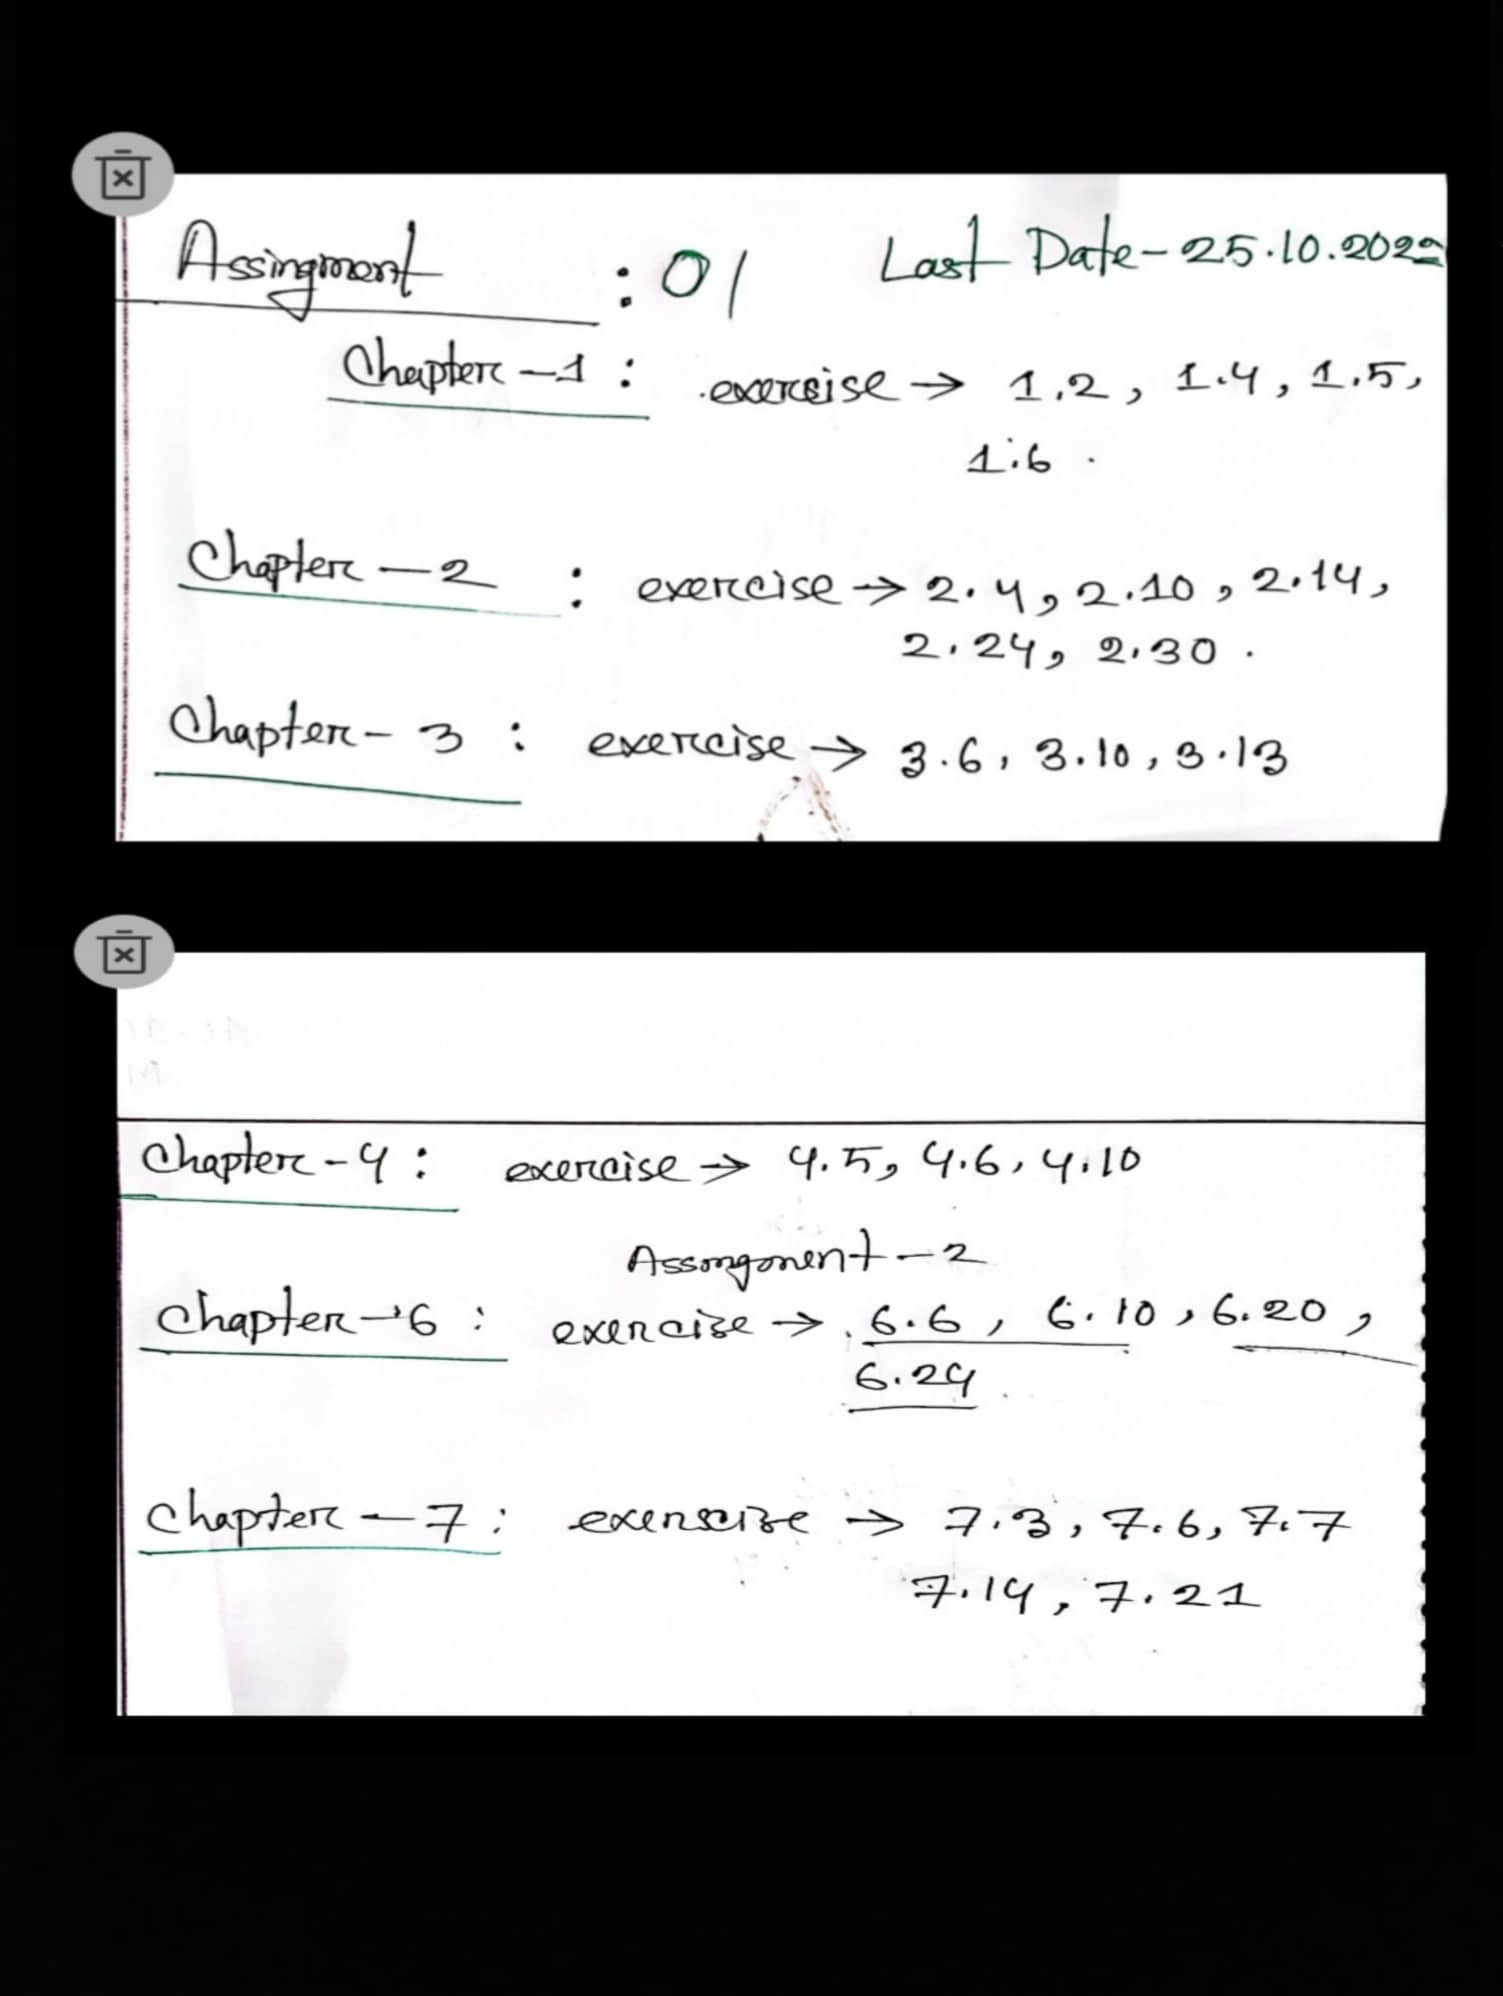 Assingment : 01 Last Date - 25.10.2022
Chapter - 1 : exercise → 1.2, 1.4, 1.5,
1.6 .
Chapter - 2 : exercise → 2.4, 2.10, 2.14,
2.24, 2.30 .
Chapter - 3 : exercise → 3.6, 3.10, 3.13
Chapter - 4 : exercise → 4.5, 4.6, 4.10
Assongment - 2
Chapter - 6 : exercize → 6.6, 6.10, 6.20,
6.24
Chapter - 7 : exerscize → 7.3, 7.6, 7.7
7.14, 7.21